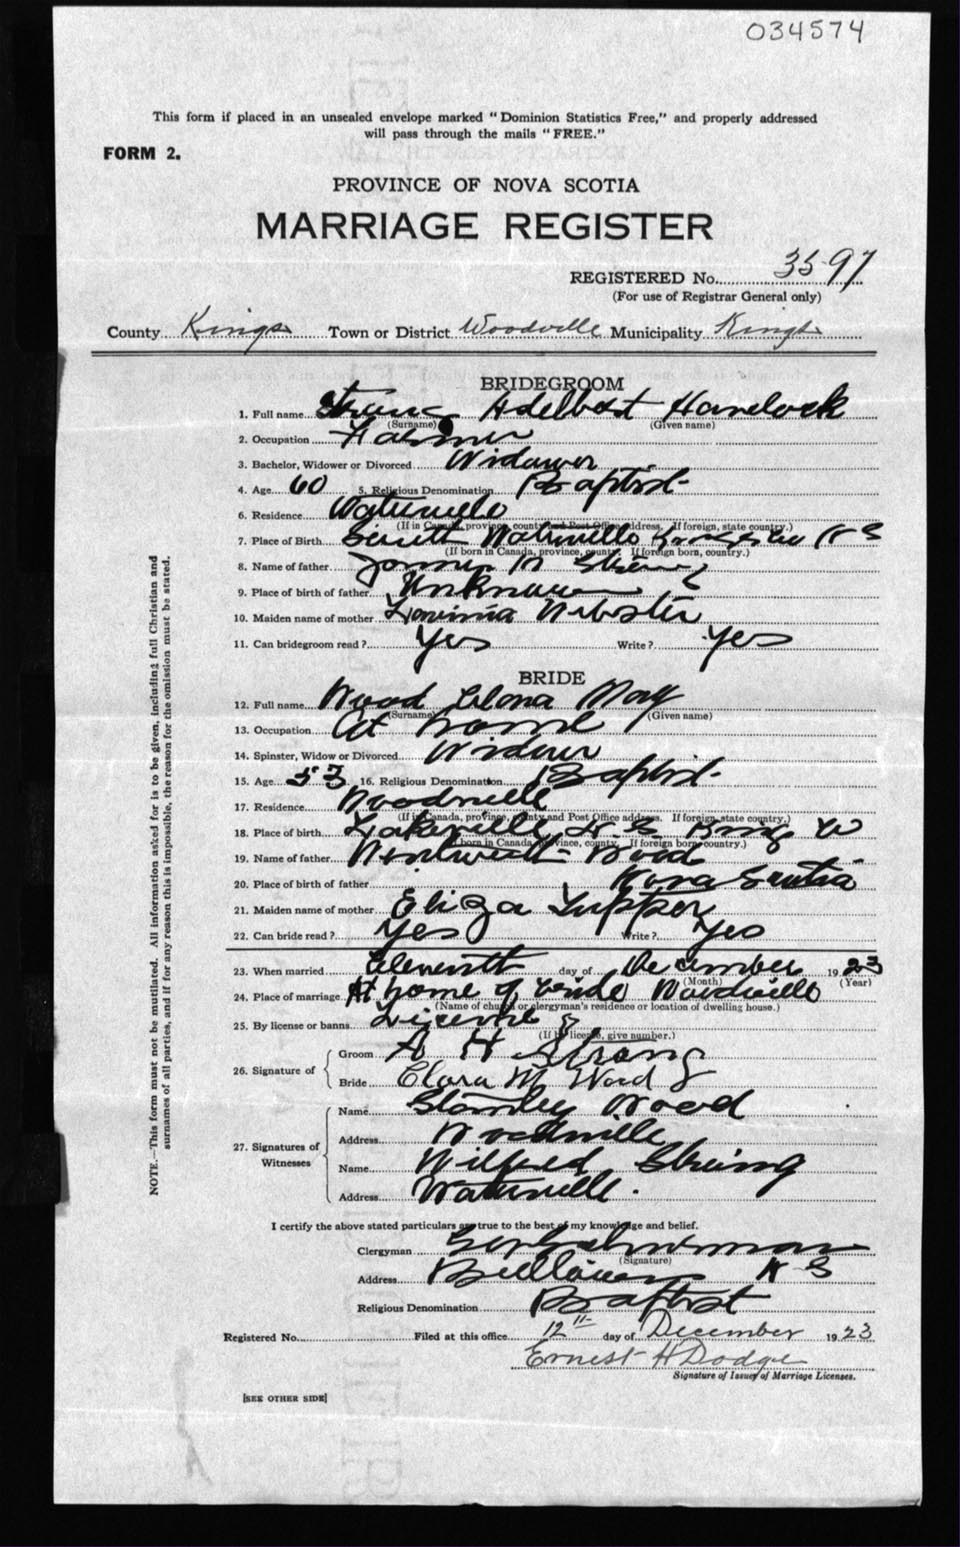 034574
This form if placed in an unsealed envelope marked "Dominion Statistics Free," and properly addressed
will pass through the mails "FREE."
FORM 2.
PROVINCE OF NOVA SCOTIA
MARRIAGE REGISTER
REGISTERED No. 3597
(For use of Registrar General only)
County Kings Town or District Woodville Municipality Kings
BRIDEGROOM
1. Full name Strong Adelbert Havelock
(Surname) (Given name)
2. Occupation Farmer
3. Bachelor, Widower or Divorced Widower
4. Age 60 5. Religious Denomination Baptist
6. Residence Waterville
(If in Canada, province, county and Post Office address. If foreign, state country.)
7. Place of Birth South Waterville Kings Co N S
(If born in Canada, province, county. If foreign born, country.)
8. Name of father James Strong
9. Place of birth of father Unknown
10. Maiden name of mother Lavinia Webster
11. Can bridegroom read? Yes Write? Yes
BRIDE
12. Full name Wood Clara May
(Surname) (Given name)
13. Occupation At home
14. Spinster, Widow or Divorced Widow
15. Age 53 16. Religious Denomination Baptist
17. Residence Woodville
(If in Canada, province, county and Post Office address. If foreign, state country.)
18. Place of birth Lakeville N.S. Kings
(If born in Canada, province, county. If foreign born, country.)
19. Name of father Wentworth Wood
20. Place of birth of father Nova Scotia
21. Maiden name of mother Eliza Tupper
22. Can bride read? Yes Write? Yes
23. When married Eleventh day of December 1923
(Month) (Year)
24. Place of marriage At home of bride Woodville
(Name of church or clergyman's residence or location of dwelling house.)
25. By license or banns License
(If by license, give number.)
26. Signature of
Groom A H Strong
Bride Clara M Wood
27. Signatures of Witnesses
Name Stanley Wood
Address Woodville
Name Wilfred Strong
Address Waterville.
I certify the above stated particulars are true to the best of my knowledge and belief.
Clergyman
(Signature)
Address N S
Religious Denomination Baptist
Registered No. Filed at this office 12th day of December 1923
Ernest H Dodge
Signature of Issuer of Marriage Licenses.
[SEE OTHER SIDE]
NOTE.—This form must not be mutilated. All information asked for is to be given, including full Christian and
surnames of all parties, and if for any reason this is impossible, the reason for the omission must be stated.